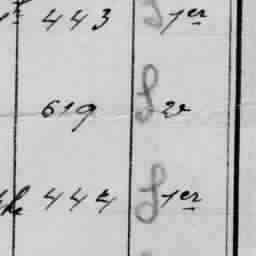 443 S 1er
619 S 2e
444 S 1er